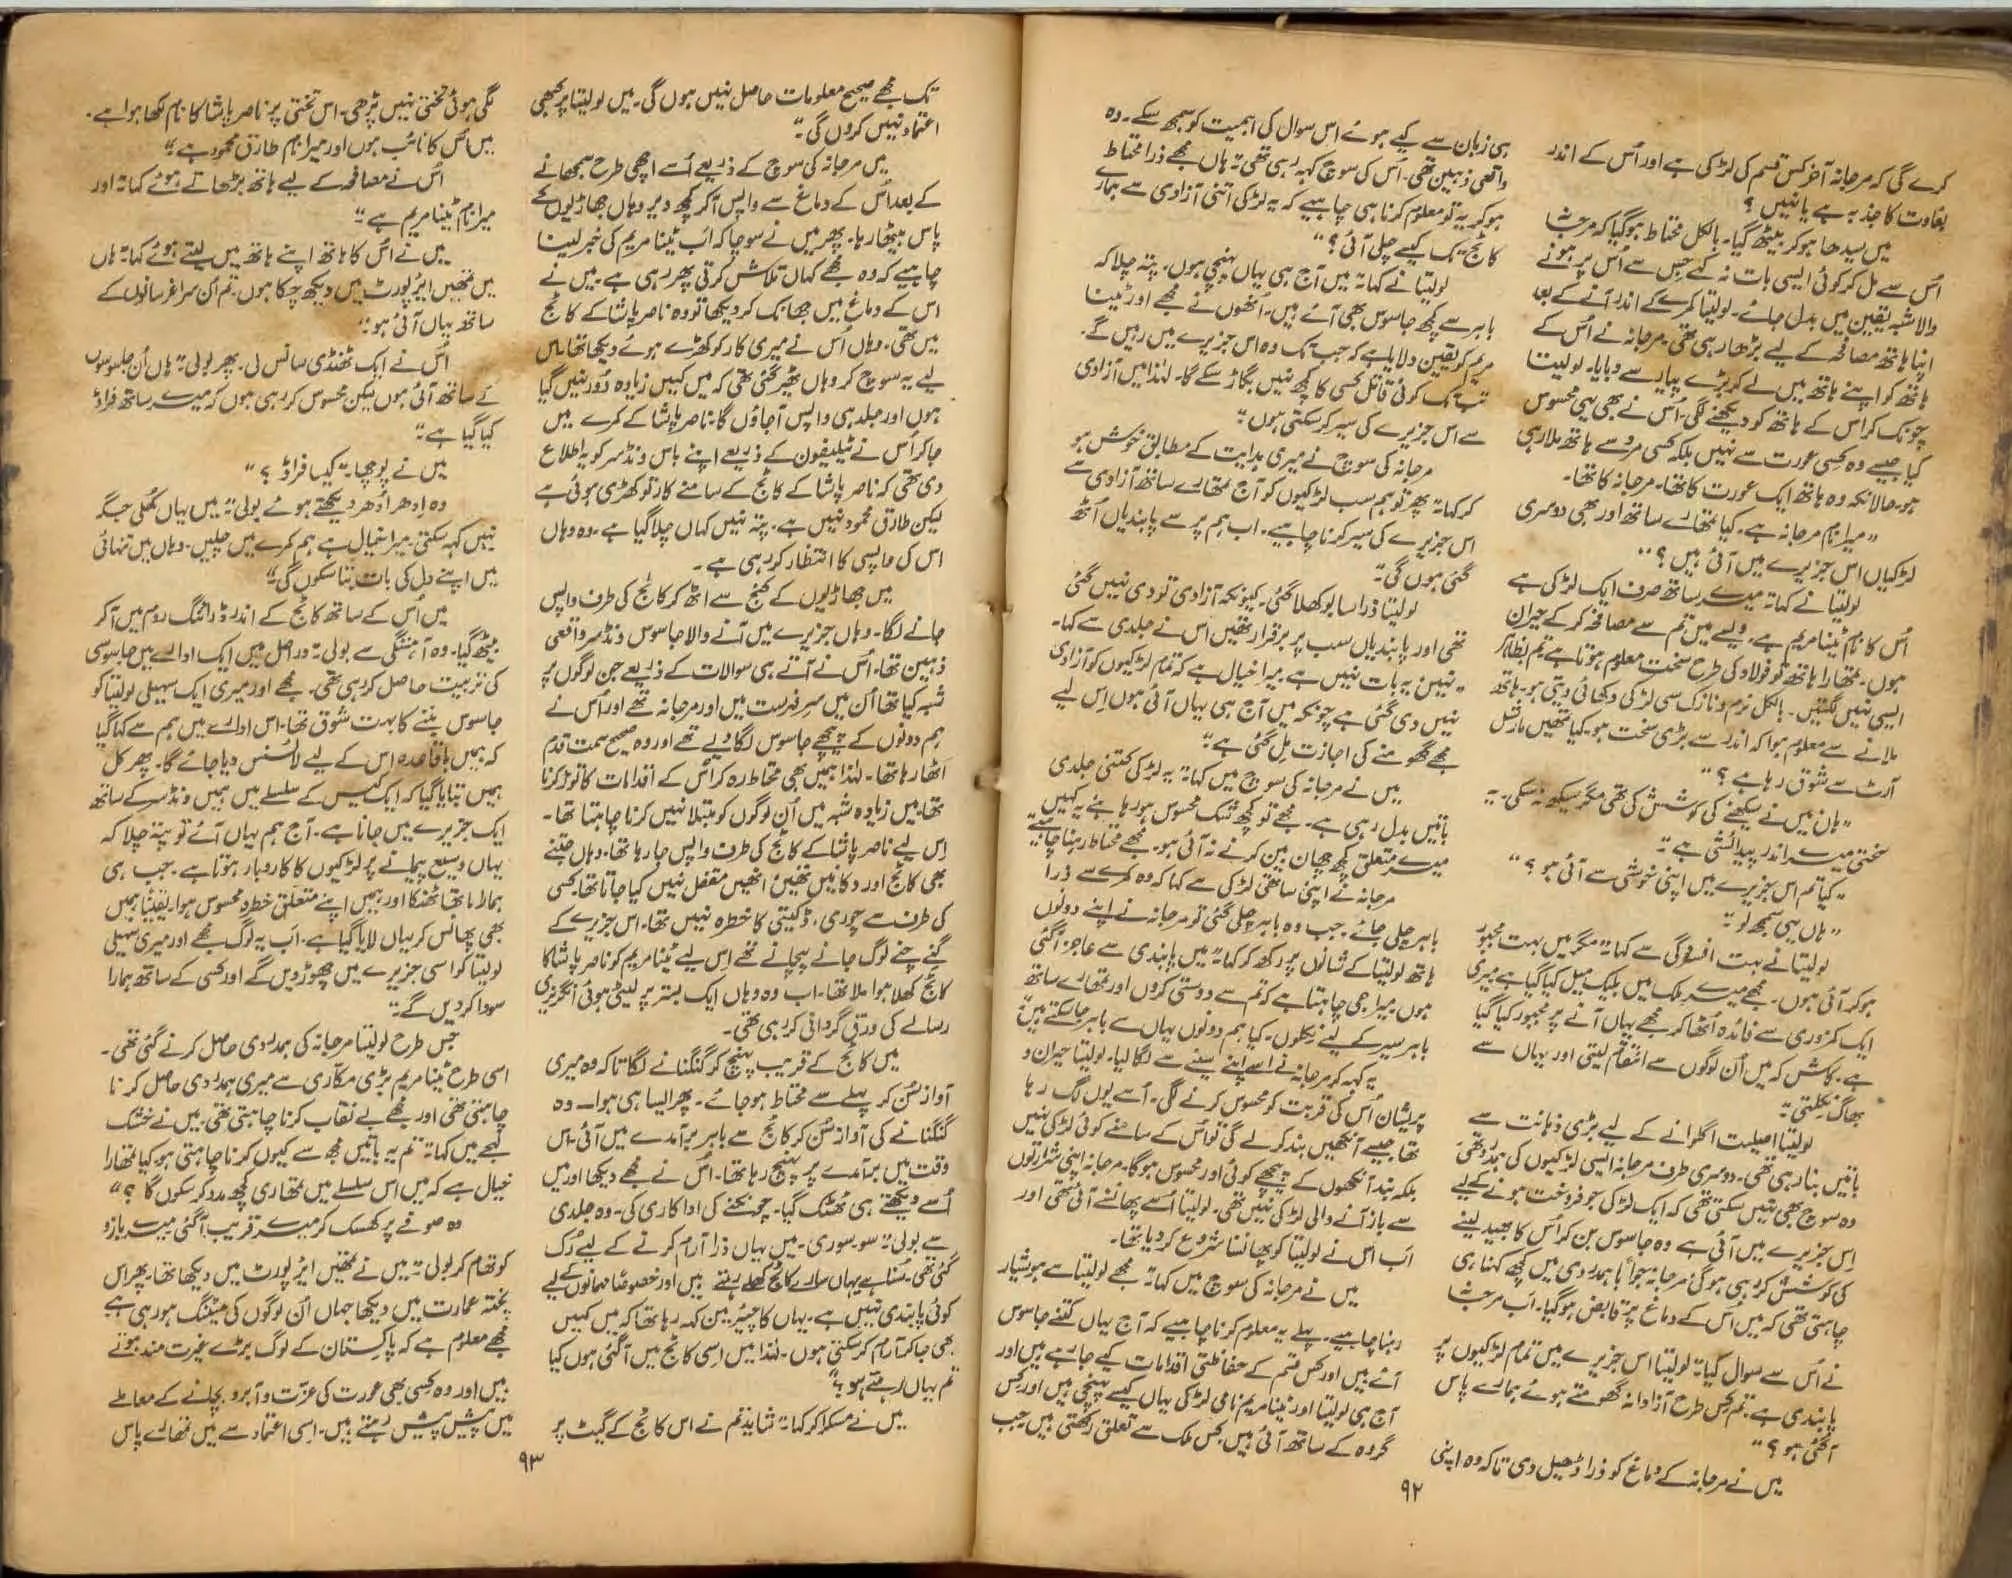 کرے گی کہ مرجانہ آخر کس قسم کی لڑکی ہے اور اُس کے اندر
بغاوت کا جذبہ ہے یا نہیں؟
میں سیدھا ہو کر بیٹھ گیا۔ بالکل محتاط ہو گیا کہ مرجانہ
اُس سے مل کر کوئی ایسی بات نہ کہے جس سے اس پر ہونے
والا شبہ یقین میں بدل جائے۔ لولیتا کمرے کے اندر آنے کے بعد
اپنا ہاتھ مصافحہ کے لیے بڑھا رہی تھی۔ مرجانہ نے اُس کے
ہاتھ کو اپنے ہاتھ میں لے کر بڑے پیار سے دبایا۔ لولیتا
چونک کر اس کے ہاتھ کو دیکھنے لگی۔ اُس نے بھی یہی محسوس
کیا جیسے وہ کسی عورت سے نہیں بلکہ کسی مرد سے ہاتھ ملا رہی
ہو۔ حالانکہ وہ ہاتھ ایک عورت کا تھا۔ مرجانہ کا تھا۔
”میرا نام مرجانہ ہے۔ کیا تمھارے ساتھ اور بھی دوسری
لڑکیاں اس جزیرے میں آئی ہیں؟“
لولیتا نے کہا ”میرے ساتھ صرف ایک لڑکی ہے
اُس کا نام ٹینا مریم ہے۔ ویسے میں تم سے مصافحہ کر کے حیران
ہوں۔ تمھارا ہاتھ تو فولاد کی طرح سخت معلوم ہوتا ہے تم بظاہر
ایسی نہیں لگتیں۔ بالکل نرم و نازک سی لڑکی دکھائی دیتی ہو۔ ہاتھ
ملانے سے معلوم ہوا کہ اندر سے بڑی سخت ہو۔ کیا تمھیں مارشل
آرٹ سے شوق رہا ہے؟“
”ہاں میں نے سیکھنے کی کوشش کی تھی مگر سیکھ نہ سکی۔ یہ
سختی میرے اندر پیدائشی ہے۔“
”کیا تم اس جزیرے میں اپنی خوشی سے آئی ہو؟“
”ہاں یہی سمجھ لو۔“
لولیتا نے بہت افسردگی سے کہا ”مگر میں بہت مجبور
ہو کر آئی ہوں۔ مجھے میرے ملک میں بلیک میل کیا گیا ہے میری
ایک کمزوری سے فائدہ اُٹھا کر مجھے یہاں آنے پر مجبور کیا گیا
ہے۔ کاش کہ میں اُن لوگوں سے انتقام لیتی اور یہاں سے
بھاگ نکلتی۔“
لولیتا اصلیت اگلوانے کے لیے بڑی ذہانت سے
باتیں بنا رہی تھی۔ دوسری طرف مرجانہ ایسی لڑکیوں کی ہمدرد تھی
وہ سوچ بھی نہیں سکتی تھی کہ ایک لڑکی جو فروخت ہونے کے لیے
اِس جزیرے میں آئی ہے وہ جاسوس بن کر اُس کا بھید لینے
کی کوشش کر رہی ہو گی مرجانہ جواباً ہمدردی میں کچھ کہنا ہی
چاہتی تھی کہ میں اُس کے دماغ پر قابض ہو گیا۔ اب مرجانہ
نے اُس سے سوال کیا ”لولیتا اس جزیرے میں تمام لڑکیوں پر
پابندی ہے۔ تم کس طرح آزادانہ گھومتے ہوئے ہمارے پاس
آ گئی ہو؟“
میں نے مرجانہ کے دماغ کو ذرا ڈھیل دی تاکہ وہ اپنی
ہی زبان سے کیے ہوئے اس سوال کی اہمیت کو سمجھ سکے۔ وہ
واقعی ذہین تھی۔ اُس کی سوچ کہہ رہی تھی ”ہاں مجھے ذرا محتاط
ہو کر یہ تو معلوم کرنا ہی چاہیے کہ یہ لڑکی اتنی آزادی سے ہمارے
کاٹیج تک کیسے چلی آئی؟“
لولیتا نے کہا ”میں آج ہی یہاں پہنچی ہوں۔ پتہ چلا کہ
باہر سے کچھ جاسوس بھی آئے ہیں۔ اُنھوں نے مجھے اور ٹینا
مریم کو یقین دلایا ہے کہ جب تک وہ اس جزیرے میں رہیں گے۔
تب تک کوئی قاتل کسی کا کچھ نہیں بگاڑ سکے گا۔ لہٰذا میں آزادی
سے اس جزیرے کی سیر کر سکتی ہوں۔“
مرجانہ کی سوچ نے میری ہدایت کے مطابق خوش ہو
کر کہا ”پھر تو ہم سب لڑکیوں کو آج تمھارے ساتھ آزادی سے
اس جزیرے کی سیر کرنا چاہیے۔ اب ہم پر سے پابندیاں اُٹھ
گئی ہوں گی۔“
لولیتا ذرا سا بوکھلا گئی۔ کیونکہ آزادی تو دی نہیں گئی
تھی اور پابندیاں سب پر برقرار تھیں اُس نے جلدی سے کہا۔
”نہیں یہ بات نہیں ہے میرا خیال ہے کہ تمام لڑکیوں کو آزادی
نہیں دی گئی ہے چونکہ میں آج ہی یہاں آئی ہوں اِس لیے
مجھے گھومنے کی اجازت مل گئی ہے۔“
میں نے مرجانہ کی سوچ میں کہا ”یہ لڑکی کتنی جلدی
باتیں بدل رہی ہے۔ مجھے تو کچھ شک محسوس ہو رہا ہے یہ کہیں
میرے متعلق کچھ چھان بین کرنے نہ آئی ہو۔ مجھے محتاط رہنا چاہیے
مرجانہ نے اپنی ساتھی لڑکی سے کہا کہ وہ کمرے سے ذرا
باہر چلی جائے۔ جب وہ باہر چلی گئی تو مرجانہ نے اپنے دونوں
ہاتھ لولیتا کے شانوں پر رکھ کر کہا ”میں پابندی سے عاجز آ گئی
ہوں میرا جی چاہتا ہے کہ تم سے دوستی کروں اور تمھارے ساتھ
باہر سیر کے لیے نکلوں۔ کیا ہم دونوں یہاں سے باہر جا سکتے ہیں“
یہ کہہ کر مرجانہ نے اسے اپنے سینے سے لگا لیا۔ لولیتا حیران و
پریشان اُس کی قربت کو محسوس کرنے لگی۔ اُسے یوں لگ رہا
تھا جیسے آنکھیں بند کر لے گی تو اُس کے سامنے کوئی لڑکی نہیں
بلکہ بند آنکھوں کے پیچھے کوئی اور محسوس ہو گا۔ مرجانہ اپنی شرارتوں
سے باز آنے والی لڑکی نہیں تھی۔ لولیتا اُسے پھانسنے آئی تھی اور
اب اس نے لولیتا کو پھانسنا شروع کر دیا تھا۔
میں نے مرجانہ کی سوچ میں کہا ”مجھے لولیتا سے ہوشیار
رہنا چاہیے۔ پہلے یہ معلوم کرنا چاہیے کہ آج یہاں کتنے جاسوس
آئے ہیں اور کس قسم کے حفاظتی اقدامات کیے جا رہے ہیں اور
آج ہی لولیتا اور ٹینا مریم نامی لڑکی یہاں کیسے پہنچی ہیں اور کس
گروہ کے ساتھ آئی ہیں۔ کس ملک سے تعلق رکھتی ہیں جب
۹۲
تک مجھے صحیح معلومات حاصل نہیں ہوں گی۔ میں لولیتا پر کبھی
اعتماد نہیں کروں گی۔“
میں مرجانہ کی سوچ کے ذریعے اُسے اچھی طرح سمجھانے
کے بعد اُس کے دماغ سے واپس آ کر کچھ دیر وہاں جھاڑیوں کے
پاس بیٹھا رہا۔ پھر میں نے سوچا کہ اب ٹینا مریم کی خبر لینا
چاہیے کہ وہ مجھے کہاں تلاش کرتی پھر رہی ہے۔ میں نے
اس کے دماغ میں جھانک کر دیکھا تو وہ ناصر پاشا کے کاٹج
میں تھی۔ وہاں اُس نے میری کار کو کھڑے ہوئے دیکھا تھا اس
لیے یہ سوچ کر وہاں ٹھہر گئی تھی کہ میں کہیں زیادہ دُور نہیں گیا
ہوں اور جلد ہی واپس آ جاؤں گا۔ ناصر پاشا کے کمرے میں
جا کر اُس نے ٹیلیفون کے ذریعے اپنے باس ونڈسر کو یہ اطلاع
دی تھی کہ ناصر پاشا کے کاٹج کے سامنے کار تو کھڑی ہوئی ہے
لیکن طارق محمود نہیں ہے۔ پتہ نہیں کہاں چلا گیا ہے۔ وہ وہاں
اس کی واپسی کا انتظار کر رہی ہے۔
میں جھاڑیوں کے کنج سے اٹھ کر کاٹج کی طرف واپس
جانے لگا۔ وہاں جزیرے میں آنے والا جاسوس ونڈسر واقعی
ذہین تھا۔ اُس نے آتے ہی سوالات کے ذریعے جن لوگوں پر
شبہ کیا تھا اُن میں سرِفہرست میں اور مرجانہ تھے اور اُس نے
ہم دونوں کے پیچھے جاسوس لگا دیے تھے اور وہ صحیح سمت قدم
اُٹھا رہا تھا۔ لہٰذا ہمیں بھی محتاط رہ کر اُس کے اقدامات کا توڑ کرنا
تھا۔ میں زیادہ شبہ میں اُن لوگوں کو مبتلا نہیں کرنا چاہتا تھا۔
اِس لیے ناصر پاشا کے کاٹج کی طرف واپس جا رہا تھا۔ وہاں جتنے
بھی کاٹج اور دکانیں تھیں انھیں مقفل نہیں کیا جاتا تھا۔ کسی
کی طرف سے چوری، ڈکیتی کا خطرہ نہیں تھا۔ اس جزیرے کے
گنے چنے لوگ جانے پہچانے تھے اِس لیے ٹینا مریم کو ناصر پاشا کا
کاٹج کھلا ہوا ملا تھا۔ اب وہ وہاں ایک بستر پر لیٹی ہوئی انگریزی
رسالے کی ورق گردانی کر رہی تھی۔
میں کاٹج کے قریب پہنچ کر گنگنانے لگا تاکہ وہ میری
آواز سُن کر پہلے سے محتاط ہو جائے۔ پھر ایسا ہی ہوا۔ وہ
گنگنانے کی آواز سُن کر کاٹج سے باہر برآمدے میں آئی۔ اس
وقت میں برآمدے پر پہنچ رہا تھا۔ اُس نے مجھے دیکھا اور میں
اُسے دیکھتے ہی ٹھٹک گیا۔ چونکنے کی اداکاری کی۔ وہ جلدی
سے بولی ”سو سوری۔ میں یہاں ذرا آرام کرنے کے لیے رُک
گئی تھی۔ سُنا ہے یہاں سارے کاٹج کھلے رہتے ہیں اور خصوصاً مہمانوں کے لیے
کوئی پابندی نہیں ہے۔ یہاں کا چیئرمین کہہ رہا تھا کہ میں کہیں
بھی جا کر آرام کر سکتی ہوں۔ لہٰذا میں اسی کاٹج میں آ گئی ہوں کیا
تم یہاں رہتے ہو؟“
میں نے مسکرا کر کہا ”شاید تم نے اس کاٹج کے گیٹ پر
لگی ہوئی تختی نہیں پڑھی۔ اس تختی پر ناصر پاشا کا نام لکھا ہوا ہے۔
میں اُس کا نائب ہوں اور میرا نام طارق محمود ہے۔“
اُس نے مصافحہ کے لیے ہاتھ بڑھاتے ہوئے کہا ”اور
میرا نام ٹینا مریم ہے۔“
میں نے اُس کا ہاتھ اپنے ہاتھ میں لیتے ہوئے کہا ”ہاں
میں تمھیں ایئرپورٹ میں دیکھ چکا ہوں۔ تم اُن سراغرسانوں کے
ساتھ یہاں آئی ہو۔“
اُس نے ایک ٹھنڈی سانس لی۔ پھر بولی ”ہاں اُن جاسوسوں
کے ساتھ آئی ہوں لیکن محسوس کر رہی ہوں کہ میرے ساتھ فراڈ
کیا گیا ہے۔“
میں نے پوچھا ”کیسا فراڈ؟“
وہ اِدھر اُدھر دیکھتے ہوئے بولی ”میں یہاں کُھلی جگہ
نہیں کہہ سکتی۔ میرا خیال ہے ہم کمرے میں چلیں۔ وہاں میں تنہائی
میں اپنے دل کی بات بتا سکوں گی۔“
میں اُس کے ساتھ کاٹج کے اندر ڈرائنگ روم میں آ کر
بیٹھ گیا۔ وہ آہستگی سے بولی ”دراصل میں ایک ادارے میں جاسوسی
کی تربیت حاصل کر رہی تھی۔ مجھے اور میری ایک سہیلی لولیتا کو
جاسوس بننے کا بہت شوق تھا۔ اس ادارے میں ہم سے کہا گیا
کہ ہمیں باقاعدہ اس کے لیے لائسنس دیا جائے گا۔ پھر کل
ہمیں بتایا گیا کہ ایک کیس کے سلسلے میں ہمیں ونڈسر کے ساتھ
ایک جزیرے میں جانا ہے۔ آج ہم یہاں آئے تو پتہ چلا کہ
یہاں وسیع پیمانے پر لڑکیوں کا کاروبار ہوتا ہے۔ جب ہی
ہمارا ماتھا ٹھنکا اور ہمیں اپنے متعلق خطرہ محسوس ہوا۔ یقیناً ہمیں
بھی پھانس کر یہاں لایا گیا ہے۔ اب یہ لوگ مجھے اور میری سہیلی
لولیتا کو اسی جزیرے میں چھوڑ دیں گے اور کسی کے ساتھ ہمارا
سودا کر دیں گے۔“
جس طرح لولیتا مرجانہ کی ہمدردی حاصل کرنے گئی تھی۔
اسی طرح ٹینا مریم بڑی مکاری سے میری ہمدردی حاصل کرنا
چاہتی تھی اور مجھے بے نقاب کرنا چاہتی تھی۔ میں نے خشک
لہجے میں کہا ”تم یہ باتیں مجھ سے کیوں کرنا چاہتی ہو کیا تمھارا
خیال ہے کہ میں اس سلسلے میں تمھاری کچھ مدد کر سکوں گا؟“
وہ صوفے پر کھسک کر میرے قریب آ گئی میرے بازو
کو تھام کر بولی ”میں نے تمھیں ایئرپورٹ میں دیکھا تھا۔ پھر اس
پختہ عمارت میں دیکھا جہاں اُن لوگوں کی میٹنگ ہو رہی ہے
مجھے معلوم ہے کہ پاکستان کے لوگ بڑے غیرت مند ہوتے
ہیں اور وہ کسی بھی عورت کی عزت و آبرو بچانے کے معاملے
میں پیش پیش رہتے ہیں۔ اسی اعتماد سے میں تمھارے پاس
۹۳